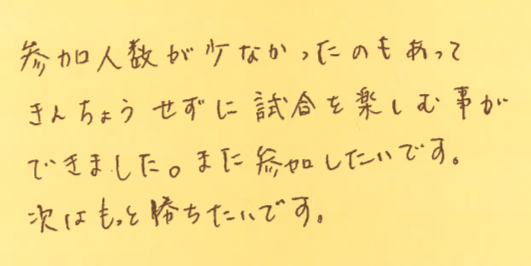 参加人数が少なかったのもあって
きんちょうせずに試合を楽しむ事が
できました。また参加したいです。
次はもっと勝ちたいです。